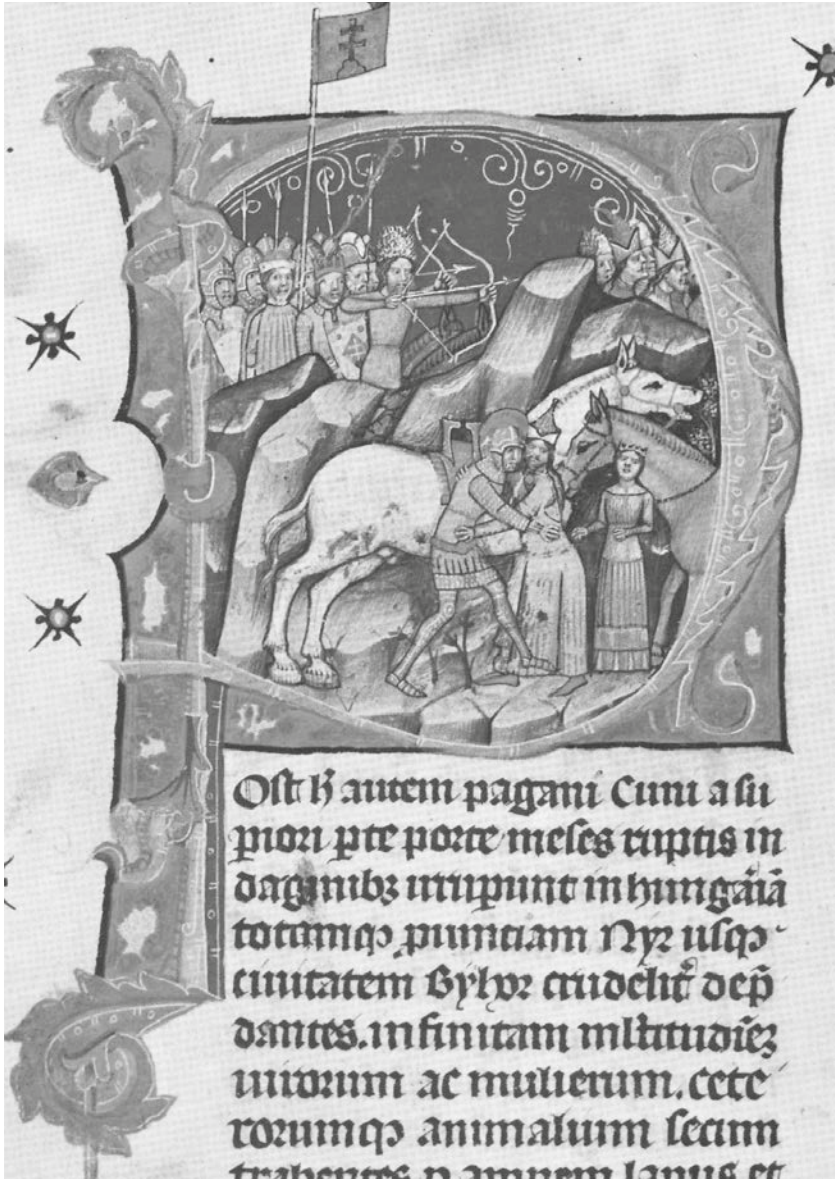 Ost ħ autem pagani Cuni a su
ꝑiori ꝑte porte meses ruptis in
daginibꝫ irruꝑunt in hungaͣiā
totamqꝫ ꝓuinciam Nyr usqꝫ
ciuitatem Byhor crudelit͛ dep̄
dantes. infinitam ml̄titudīeꝫ
uirorum ac mulierum. cete
rorumqꝫ animalium secum
trahentes ꝑ amnem lapus et